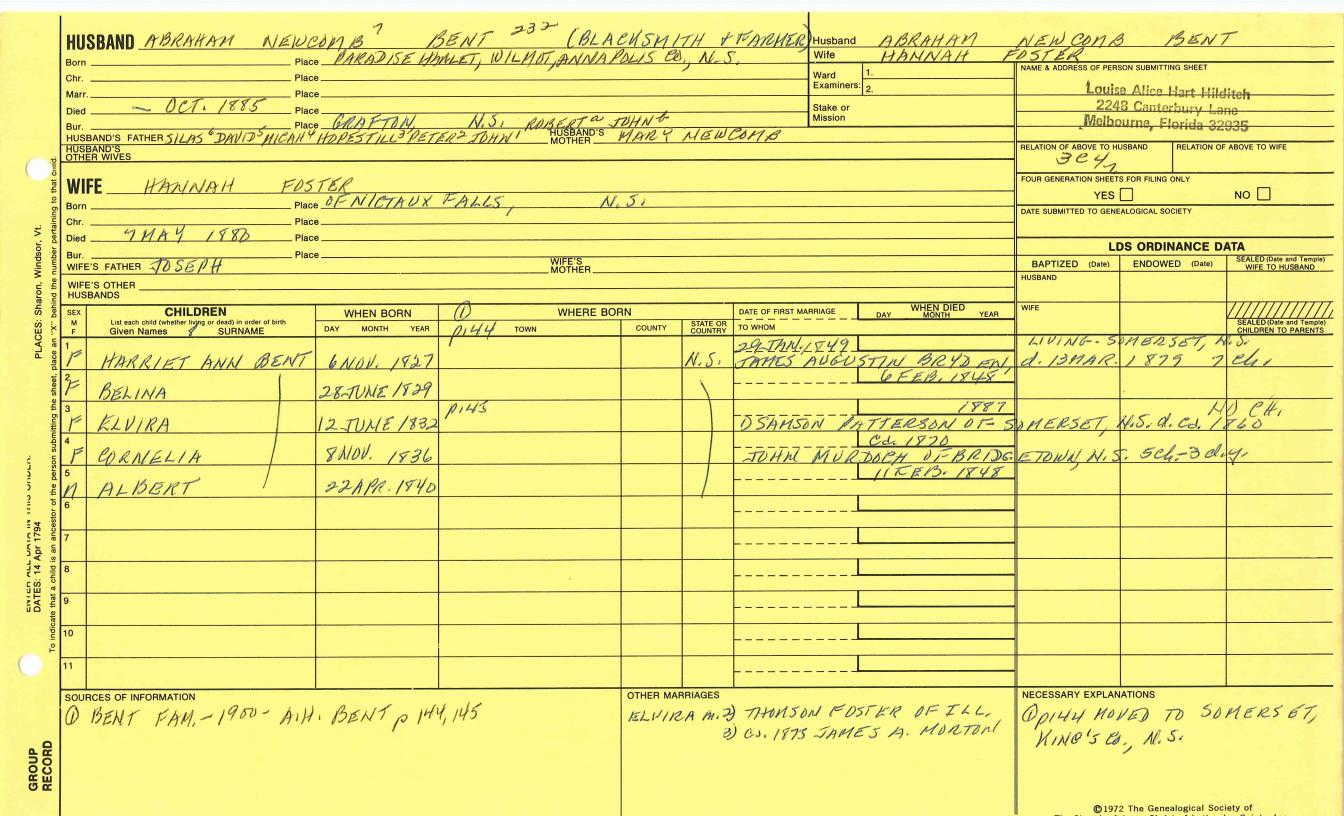 HUSBAND ABRAHAM NEWCOMB 7 BENT 232 (BLACKSMITH & FARMER)
Born Place PARADISE HAMLET, WILMOT, ANNAPOLIS CO., N.S.
Chr. Place
Marr. Place
Died — OCT. 1885 Place
Bur. Place GRAFTON N.S. ROBERT a JOHN b
HUSBAND'S FATHER SILAS 6 DAVID 5 MICAH 4 HOPESTILL 3 PETER 2 JOHN 1 HUSBAND'S MOTHER MARY NEWCOMB
HUSBAND'S OTHER WIVES
WIFE HANNAH FOSTER
Born Place OF NICTAUX FALLS, N.S.
Chr. Place
Died 7 MAY 1880 Place
Bur. Place
WIFE'S FATHER JOSEPH WIFE'S MOTHER
WIFE'S OTHER HUSBANDS
Husband ABRAHAM NEWCOMB BENT
Wife HANNAH FOSTER
Ward Examiners: 1. 2.
Stake or Mission
NAME & ADDRESS OF PERSON SUBMITTING SHEET
Louise Alice Hart Hilditch
2248 Canterbury Lane
Melbourne, Florida 32935
RELATION OF ABOVE TO HUSBAND RELATION OF ABOVE TO WIFE
FOUR GENERATION SHEETS FOR FILING ONLY
YES NO
DATE SUBMITTED TO GENEALOGICAL SOCIETY
LDS ORDINANCE DATA
BAPTIZED (Date) ENDOWED (Date) SEALED (Date and Temple) WIFE TO HUSBAND
HUSBAND
WIFE
SEALED (Date and Temple) CHILDREN TO PARENTS
SEX M F
CHILDREN
List each child (whether living or dead) in order of birth
Given Names SURNAME
WHEN BORN
DAY MONTH YEAR
① WHERE BORN
p144 TOWN COUNTY STATE OR COUNTRY
DATE OF FIRST MARRIAGE
TO WHOM
WHEN DIED
DAY MONTH YEAR
29 JAN. 1849 LIVING - SOMERSET, N.S.
1 F HARRIET ANN BENT 6 NOV. 1827 N.S. JAMES AUGUSTIN BRYDEN, d. 12 MAR. 1879 7 Ch.
6 FEB. 1848
2 F BELINA 28 JUNE 1829
p145 1887 NO CH.
3 F ELVIRA 12 JUNE 1832 ① SAMSON PATTERSON OF SOMERSET, N.S. d. Ca. 1860
Ca. 1870
4 F CORNELIA 8 NOV. 1836 JOHN MURDOPH OF BRIDGETOWN, N.S. 5 ch. - 3 d.y.
11 FEB. 1848
5 M ALBERT 22 APR. 1840
6
7
8
9
10
11
SOURCES OF INFORMATION
① BENT FAM. - 1900 - A.H. BENT p 144, 145
OTHER MARRIAGES
ELVIRA m. 2) THOMSON FOSTER OF ILL.
3) Ca. 1873 JAMES A. MORTON
NECESSARY EXPLANATIONS
① p144 MOVED TO SOMERSET,
KING'S CO., N.S.
©1972 The Genealogical Society of
PLACES: Sharon, Windsor, Vt.
DATES: 14 Apr 1794
To indicate that a child is an ancestor of the person submitting the sheet, place an "X" behind the number pertaining to that child.
GROUP RECORD